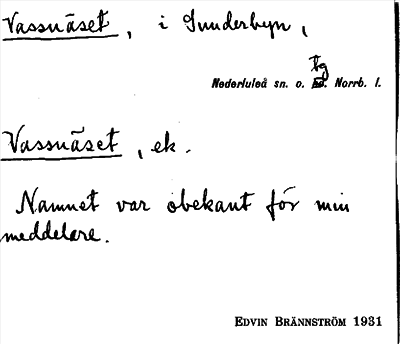 Vassnäset, i Sunderbyn,
tg
Nederluleå sn. o. hd. Norrb. l.
Vassnäset, ek.
Namnet var obekant för min
meddelare.
EDVIN BRÄNNSTRÖM 1931